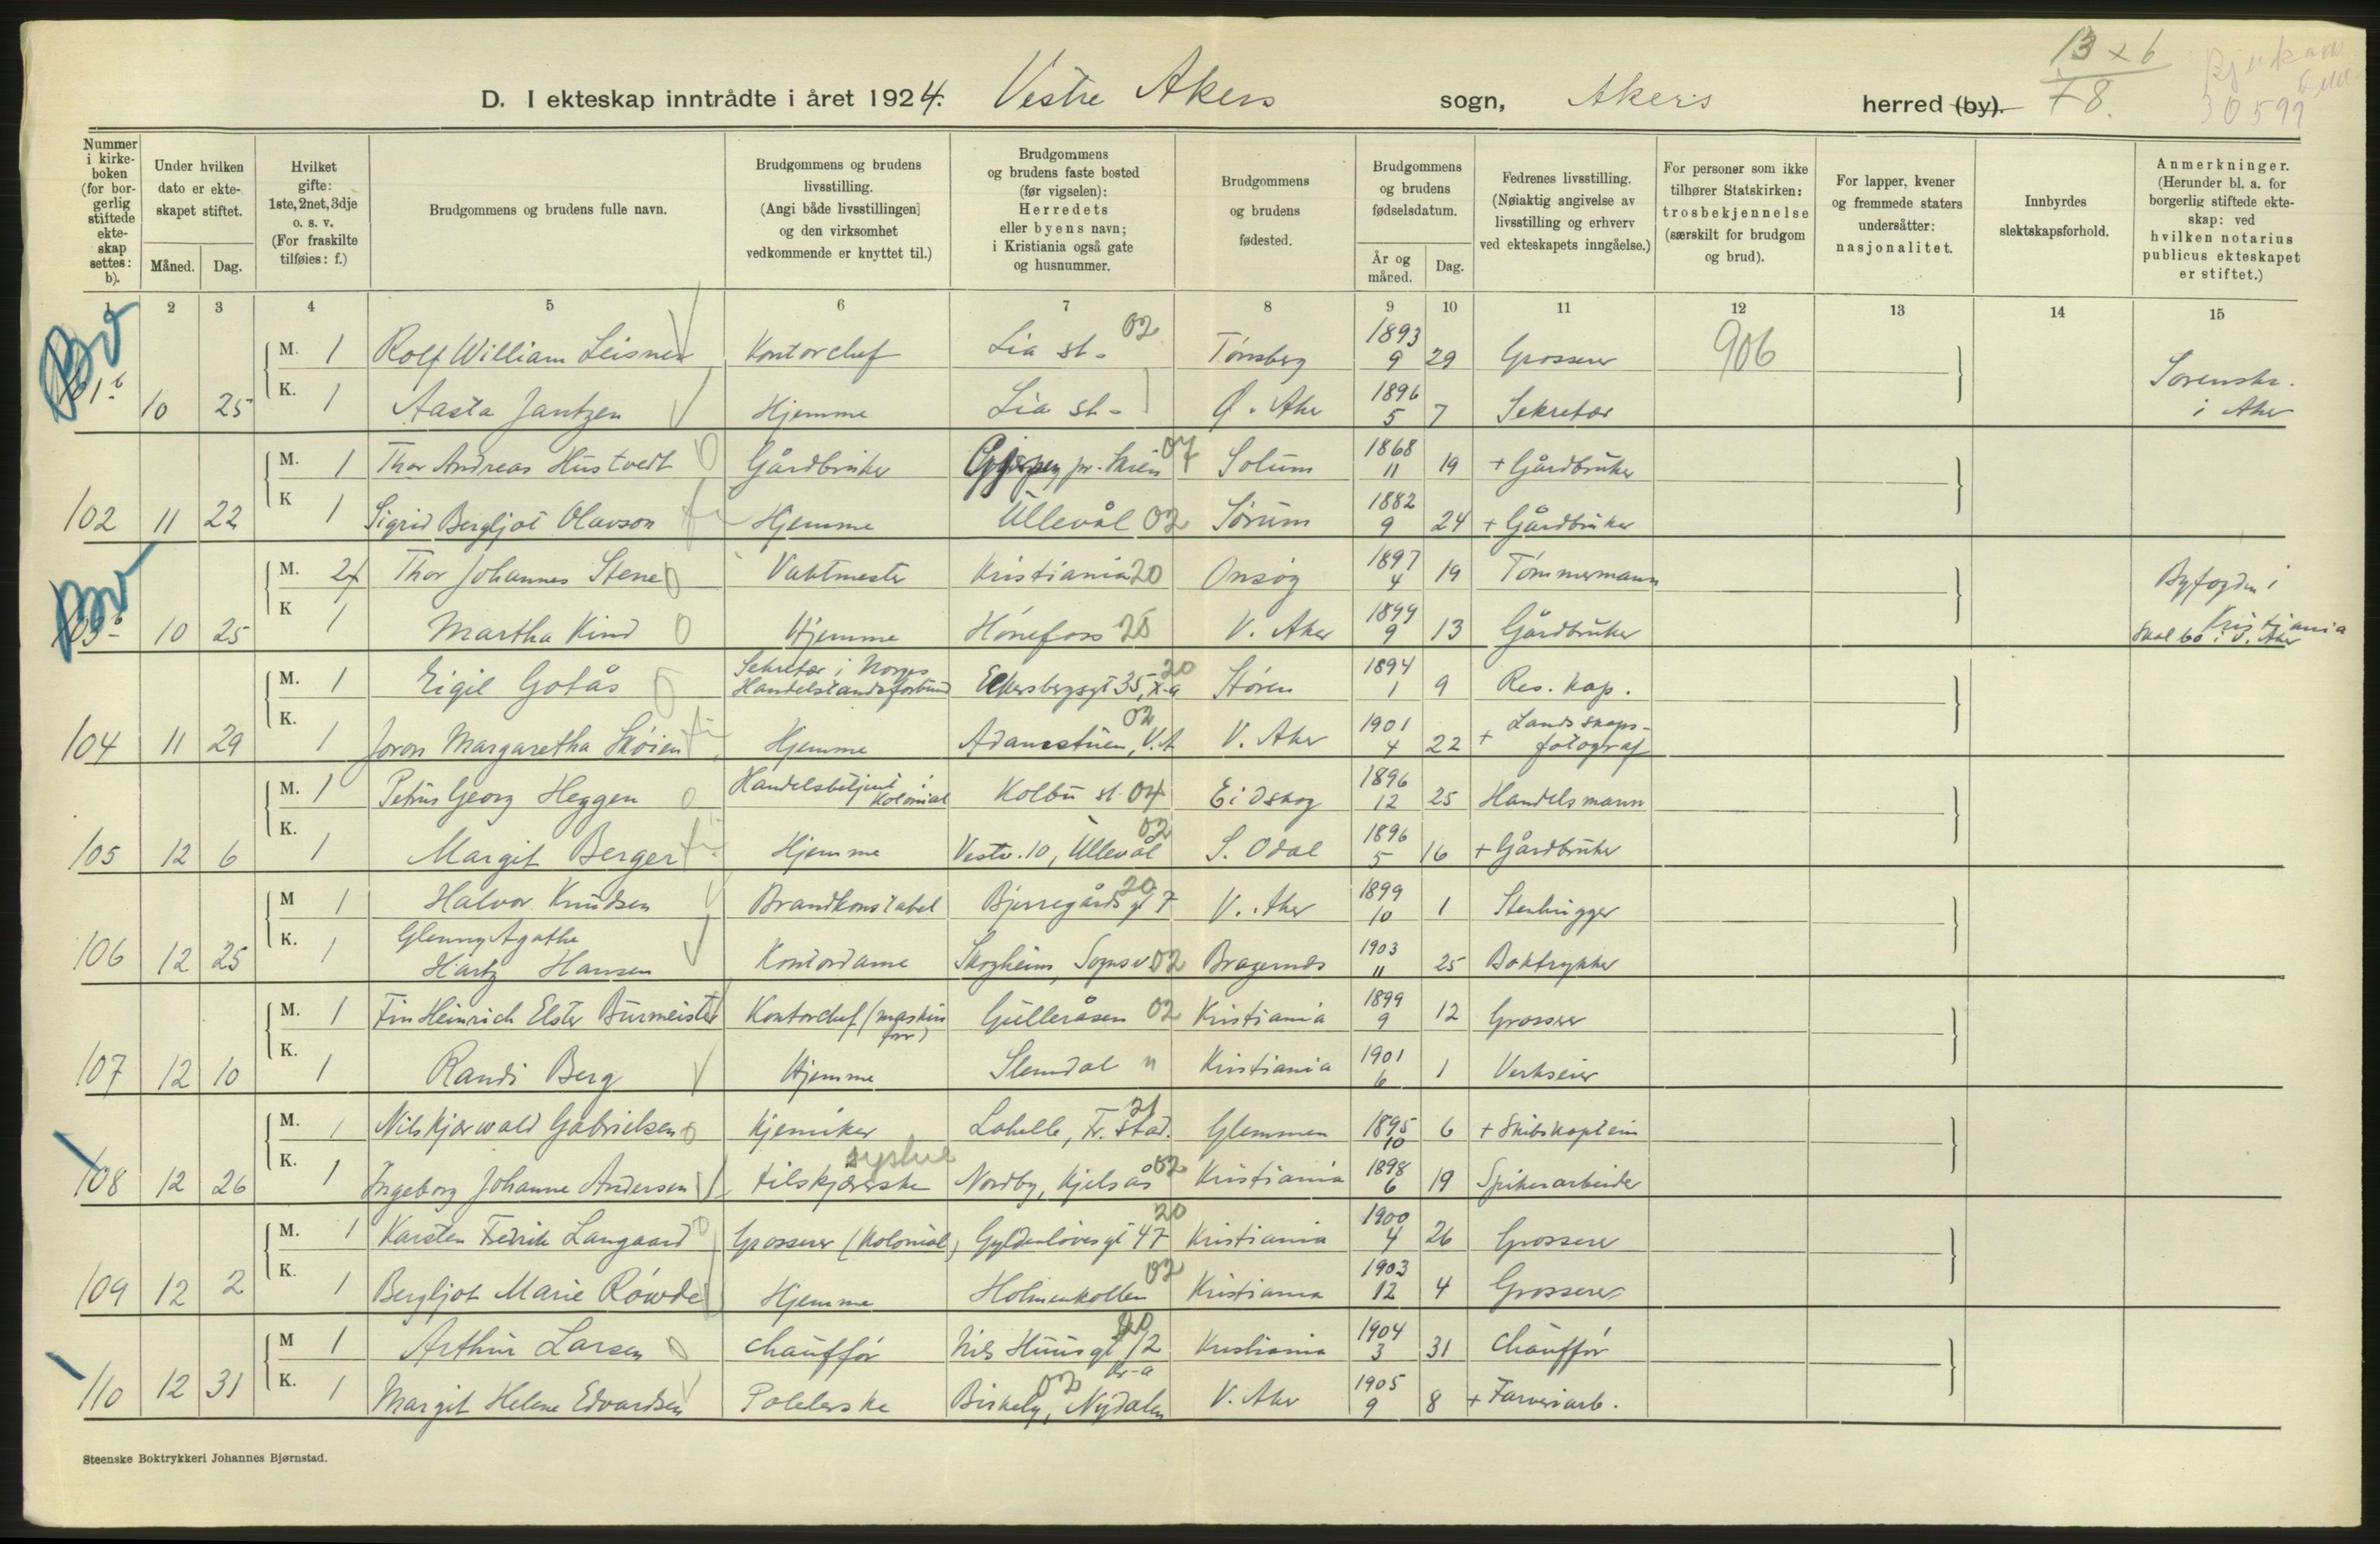 13 x 6
78.
30597
D. I ekteskap inntrådte i året 1924. Vestre Akers sogn, Akers herred (by).
Nummer i kirkeboken (for borgerlig stiftede ekteskap settes: b).
Under hvilken dato er ekteskapet stiftet.
Måned. Dag.
Hvilket gifte: 1ste, 2net, 3dje o. s. v. (For fraskilte tilføies: f.)
Brudgommens og brudens fulle navn.
Brudgommens og brudens livsstilling. (Angi både livsstillingen og den virksomhet vedkommende er knyttet til.)
Brudgommens og brudens faste bosted (før vigselen): Herredets eller byens navn; i Kristiania også gate og husnummer.
Brudgommens og brudens fødested.
Brudgommens og brudens fødselsdatum.
År og måned. Dag.
Fedrenes livsstilling. (Nøiaktig angivelse av livsstilling og erhverv ved ekteskapets inngåelse.)
For personer som ikke tilhører Statskirken: trosbekjennelse (særskilt for brudgom og brud).
For lapper, kvener og fremmede staters undersåtter: nasjonalitet.
Innbyrdes slektskapsforhold.
Anmerkninger. (Herunder bl. a. for borgerlig stiftede ekteskap: ved hvilken notarius publicus ekteskapet er stiftet.)
1 2 3 4 5 6 7 8 9 10 11 12 13 14 15
M. 1 Rolf William Leisner Kontorchef Lia st. 02 Tønsberg 1893 9 29 Grosserer 906
101 b 10 25 K. 1 Aasta Jantzen Hjemme Lia st. Ø. Aker 1896 5 7 Sekretær Sorenskr. i Aker
M. 1 Thor Andreas Hustvedt Gårdbruker Gjerpen pr. Skien 07 Solum 1868 11 19 + Gårdbruker
102 11 22 K 1 Sigrid Bergljot Olavson Hjemme Ullevål 02 Sørum 1882 9 24 + Gårdbruker
M. 2f Thor Johannes Stene Vaktmester Kristiania 20 Onsøy 1897 4 19 Tømmermann Byfogden i Kristiania
103 b 10 25 K 1 Martha Kind Hjemme Hønefoss 25 V. Aker 1899 9 13 Gårdbruker Skal bo i V. Aker
M. 1 Eigil Gotås Sekretær i Norges Handelsstandsforbund Eckersbergsgt 35, X-a 20 Støren 1894 1 9 Res. kap.
104 11 29 K. 1 Joron Margaretha Skøien Hjemme Adamstuen, V.A 02 V. Aker 1901 4 22 + Landskapsfotograf
M. 1 Petrus Georg Heggen Handelsbetjent Kolonial Kolbu st. 04 Eidskog 1896 12 25 Handelsmann
105 12 6 K. 1 Margit Berger Hjemme Vestv. 10, Ullevål 02 S. Odal 1896 5 16 + Gårdbruker
M 1 Halvor Knudsen Brandkonstabel Bjerregårds gt 7 20 V. Aker 1899 10 1 Stenhugger
106 12 25 K. 1 Glenny Agathe Hartz Hansen Kontordame Skogheim, Sognsv 02 Bragernes 1903 11 25 Boktrykker
M. 1 Fin Heinrich Elster Burmeister Kontorchef (maskinforr) Gulleråsen 02 Kristiania 1899 9 12 Grosserer
107 12 10 K. 1 Randi Berg Hjemme Slemdal " Kristiania 1901 6 1 Verkseier
M. 1 Nils Kjærwald Gabrielsen Kjemiker Lahelle, Fr.stad. 21 Glemmen 1895 10 6 + Skibskaptein
108 12 26 K. 1 Ingeborg Johanne Andersen Tilskjærerske Nordby, Kjelsås 02 Kristiania 1898 6 19 Spikerarbeider
M. 1 Karsten Fredrik Langaard Grosserer (Kolonial) Gyldenløvesgt 47 20 Kristiania 1900 4 26 Grosserer
109 12 2 K. 1 Bergljot Marie Röwde Hjemme Holmenkollen 02 Kristiania 1903 12 4 Grosserer
M 1 Arthur Larsen Chauffør Nils Huusgt 12 Kr-a 20 Kristiania 1904 3 31 Chauffør
110 12 31 K. 1 Margit Helene Edvardsen Polelerske Birkely, Nydalen 02 V. Aker 1905 9 8 + Farveriarb.
Steenske Boktrykkeri Johannes Bjørnstad.